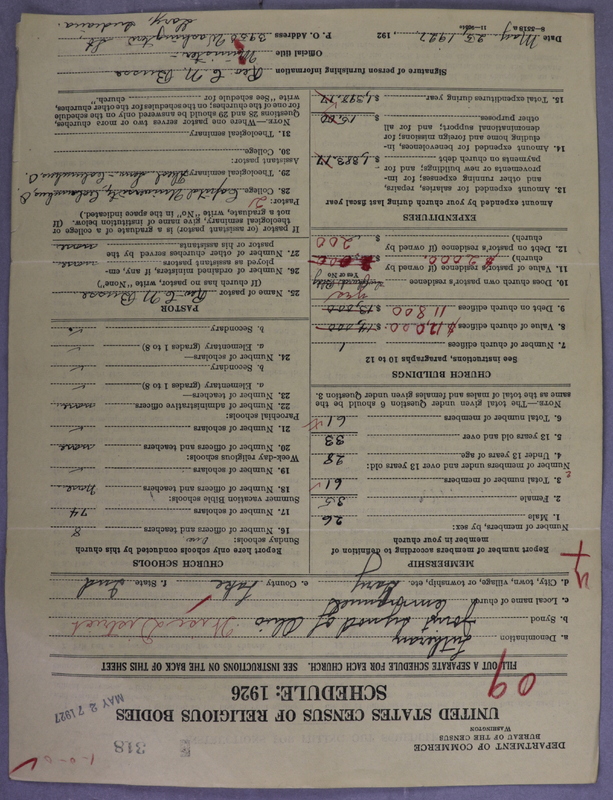 DEPARTMENT OF COMMERCE
BUREAU OF THE CENSUS
WASHINGTON
318
1-0-0
UNITED STATES CENSUS OF RELIGIOUS BODIES
MAY 27 1927
SCHEDULE: 1926
09
FILL OUT A SEPARATE SCHEDULE FOR EACH CHURCH. SEE INSTRUCTIONS ON THE BACK OF THIS SHEET
a. Denomination Lutheran
b. Synod Joint Synod of Ohio District
c. Local name of church Emmanuel
d. City, town, village, or township, etc. Gary e. County Lake f. State Ind
MEMBERSHIP
Report number of members according to definition of
member in your church
Number of members, by sex:
1. Male 26
2. Female 35
3. Total number of members 61
Number of members under and over 13 years old:
4. Under 13 years of age 28
5. 13 years old and over 33
6. Total number of members 61
NOTE.—The total given under Question 6 should be the
same as the total of males and females given under Question 3.
CHURCH BUILDINGS
See instructions, paragraphs 10 to 12
7. Number of church edifices 1
8. Value of church edifices $12,000 $14,000
9. Debt on church edifices 11800 $13,000
10. Does church own pastor's residence yes
Yes or No
11. Value of pastor's residence (if owned by
church) $2,000
12. Debt on pastor's residence (if owned by
church) $ 200
EXPENDITURES
Amount expended by your church during last fiscal year
13. Amount expended for salaries, repairs,
and other running expenses; for im-
provements or new buildings; and for
payments on church debt $1,383.17
14. Amount expended for benevolences, in-
cluding home and foreign missions; for
denominational support; and for all
other purposes $ 15.00
15. Total expenditures during year $1,398.17
CHURCH SCHOOLS
Report here only schools conducted by this church
Sunday schools:
16. Number of officers and teachers 8
17. Number of scholars 74
Summer vacation Bible schools:
18. Number of officers and teachers None
19. Number of scholars
Week-day religious schools:
20. Number of officers and teachers none
21. Number of scholars
Parochial schools:
22. Number of administrative officers none
23. Number of teachers—
a. Elementary (grades 1 to 8)
b. Secondary
24. Number of scholars—
a. Elementary (grades 1 to 8)
b. Secondary
PASTOR
25. Name of pastor Rev C N Busse
(If church has no pastor, write "None")
26. Number of ordained ministers, if any, em-
ployed as assistant pastors none
27. Number of other churches served by the
pastor or his assistants none
If pastor (or assistant pastor) is a graduate of a college or
theological seminary, give name of institution below. (If
not a graduate, write "No" in the space indicated.)
Pastor:
28. College Capital University, Columbus, O
29. Theological seminary Theol. Sem. Columbus O.
Assistant pastor:
30. College
31. Theological seminary
NOTE.—Where one pastor serves two or more churches,
Questions 28 and 29 should be answered only on the schedule
for one of the churches; on the schedules for the other churches,
write "See schedule for church."
Signature of person furnishing information Rev C N Busse
Official title Minister
P. O. Address 3950 Washington St
Gary, Indiana.
Date May 23, 1927, 192